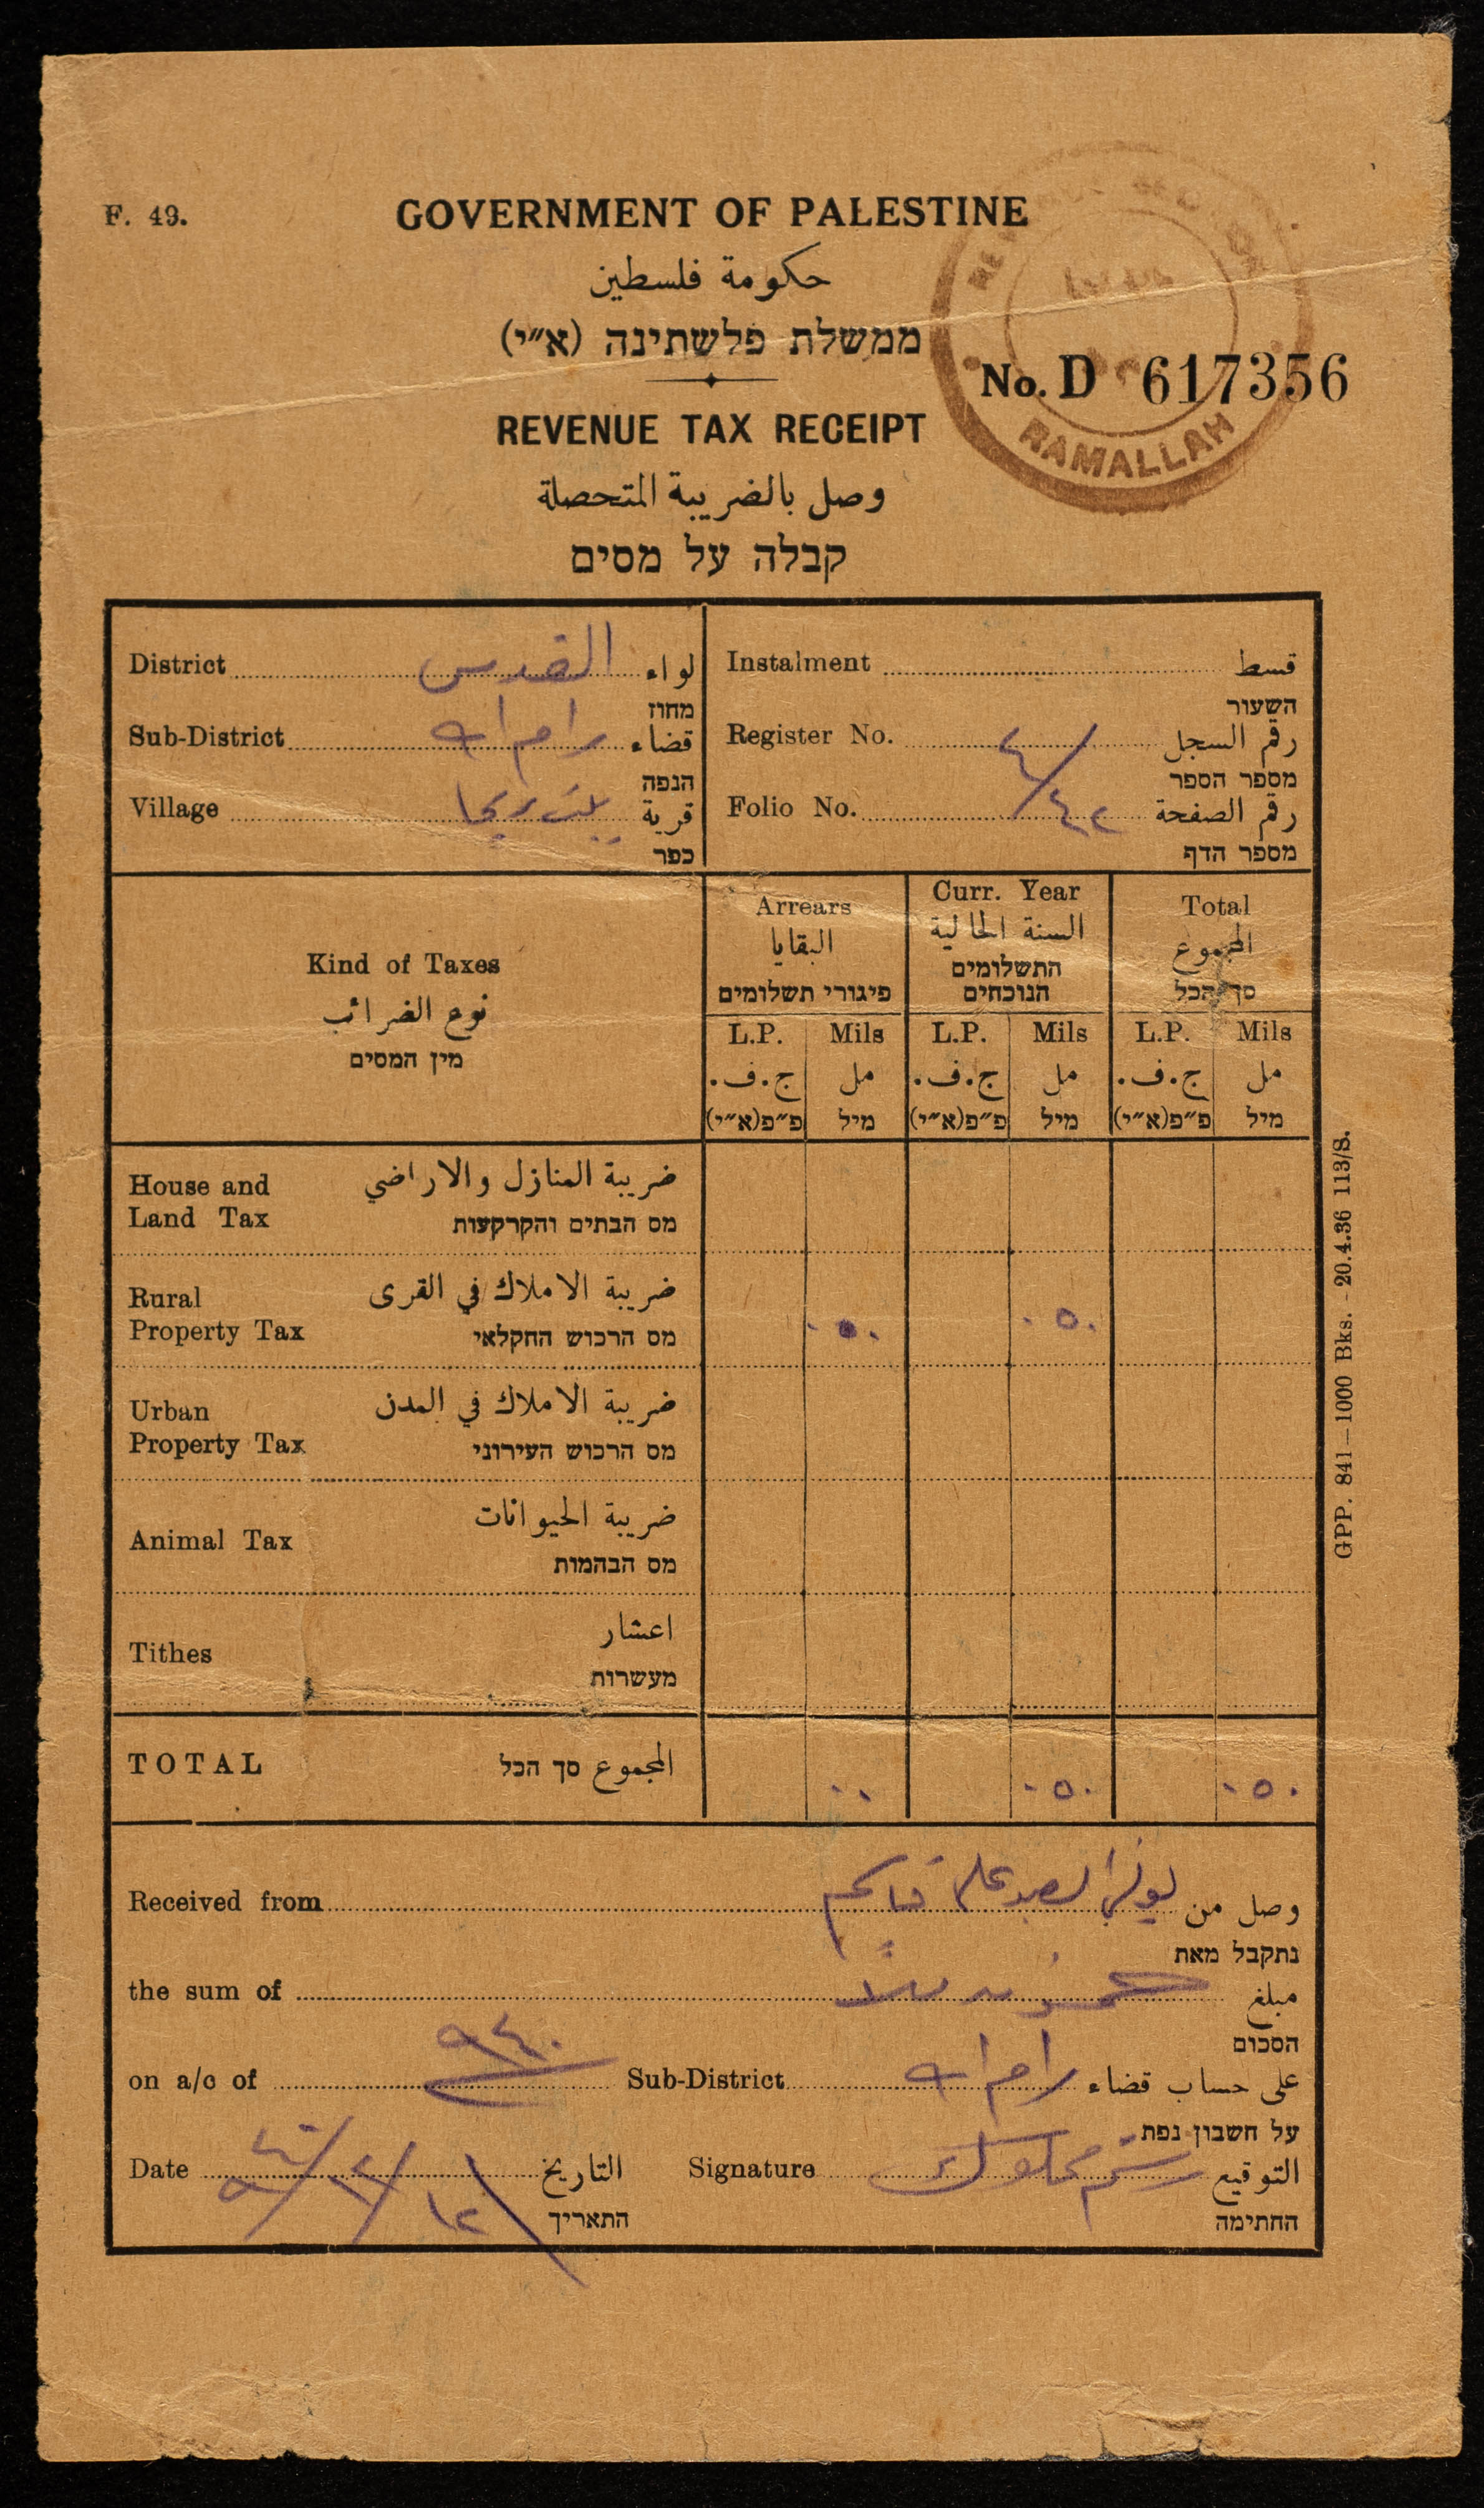 F. 49.
GOVERNMENT OF PALESTINE
حكومة فلسطين
ממשלת פלשתינה (א״י)
No. D 617356
RAMALLAH
REVENUE TAX RECEIPT
وصل بالضريبة المتحصلة
קבלה על מסים
District القدس لواء
מחוז
Sub-District رام الله قضاء
הנפה
Village قرية
כפר
Instalment قسط
השעור
Register No. ٤ رقم السجل
מספר הספר
Folio No. رقم الصفحة
מספר הדף
Kind of Taxes
نوع الضرائب
מין המסים
Arrears
البقايا
פיגורי תשלומים
Curr. Year
السنة الحالية
התשלומים
הנוכחים
Total
المجموع
סך הכל
L.P. Mils L.P. Mils L.P. Mils
ج.ف. مل ج.ف. مل ج.ف. مل
פ״פ(א״י) מיל פ״פ(א״י) מיל פ״פ(א״י) מיל
House and ضريبة المنازل والاراضي
Land Tax מס הבתים והקרקעות
Rural ضريبة الاملاك في القرى
Property Tax מס הרכוש החקלאי
٠٥٠ ٠٥٠
Urban ضريبة الاملاك في المدن
Property Tax מס הרכוש העירוני
Animal Tax ضريبة الحيوانات
מס הבהמות
Tithes اعشار
מעשרות
TOTAL المجموع סך הכל ٠٠ ٠٥٠ ٠٥٠
GPP. 841—1000 Bks. - 20.4.36 113/S.
Received from وصل من
נתקבל מאת
the sum of مبلغ
הסכום
on a/c of ٩٤٠ Sub-District رام الله على حساب قضاء
על חשבון נפת
Date التاريخ
התאריך
Signature التوقيع
החתימה